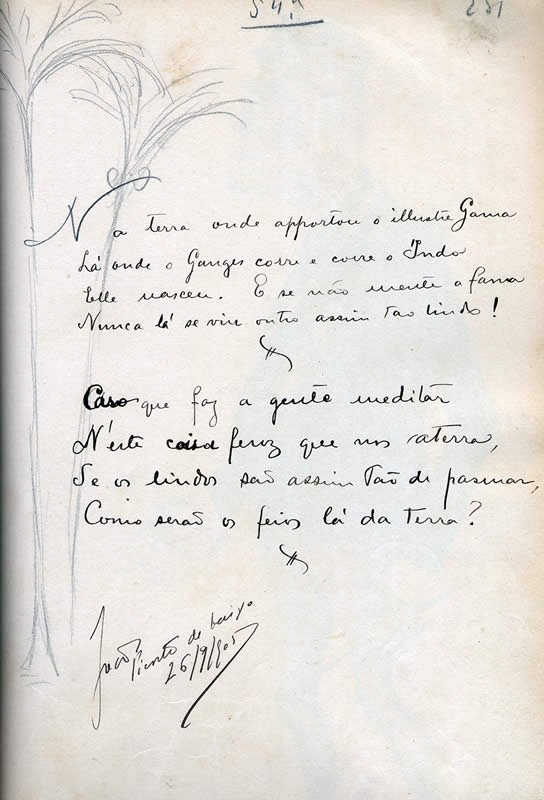 54ª
231
Na terra onde apportou o illustre Gama
Lá onde o Ganges corre e corre o Indo
Elle nasceu. E se não mente a fama
Nunca lá se viu outro assim tão lindo!
Caso que faz a gente meditar
N'este caso feroz que nos aterra,
Se os lindos são assim tão de pasmar,
Como serão os feios lá da terra?
João de baixo
26/9/905